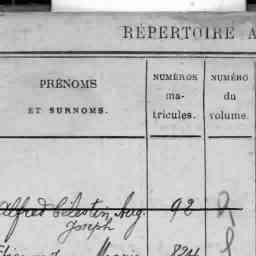 RÉPERTOIRE A
PRÉNOMS
ET SURNOMS.
NUMÉROS
ma-
tricules.
NUMÉRO
du
volume.
Alfred Célestin Aug. 92
Joseph
Marie 824